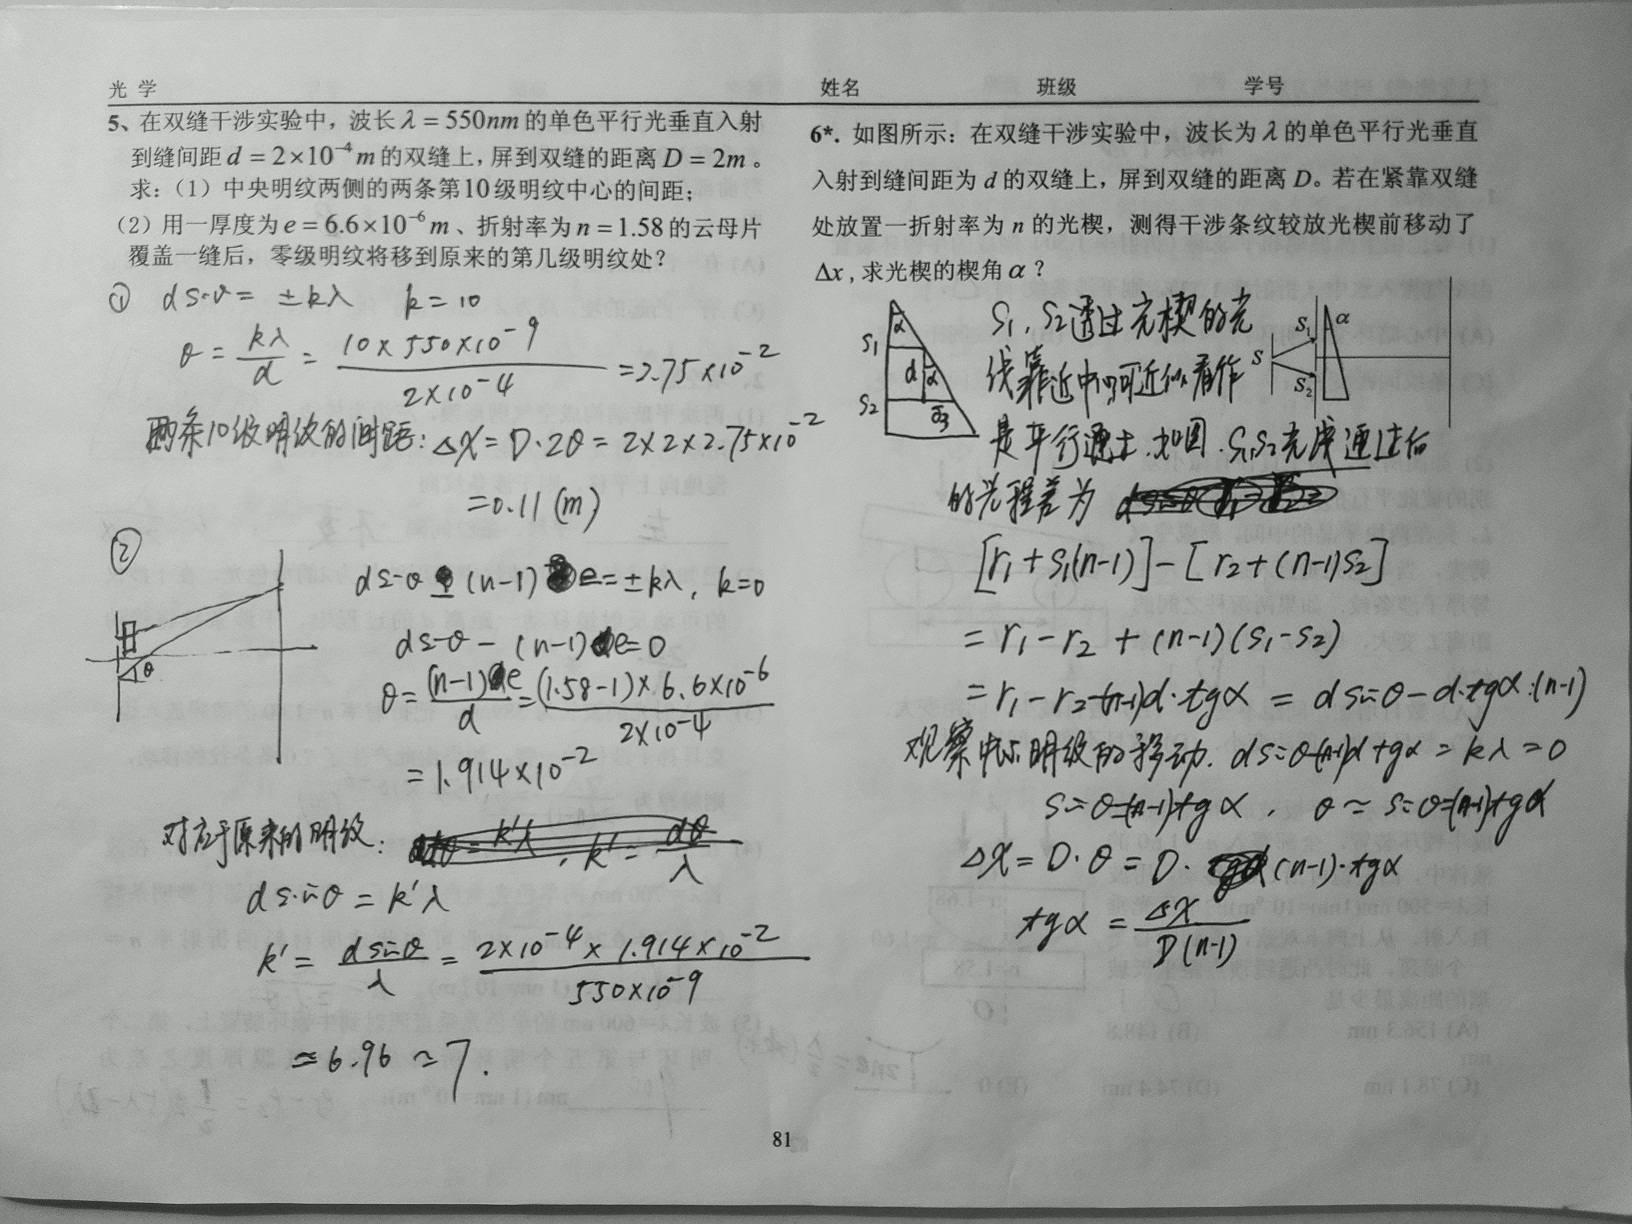 光 学 姓名 班级 学号
5、在双缝干涉实验中，波长λ=550nm的单色平行光垂直入射
到缝间距d=2×10⁻⁴m的双缝上，屏到双缝的距离D=2m。
求：（1）中央明纹两侧的两条第10级明纹中心的间距；
（2）用一厚度为e=6.6×10⁻⁶m、折射率为n=1.58的云母片
覆盖一缝后，零级明纹将移到原来的第几级明纹处？
① d sinθ = ±kλ k=10
θ = kλ/d = 10×550×10⁻⁹/2×10⁻⁴ = 2.75×10⁻²
两条10级明纹的间距：ΔX = D·2θ = 2×2×2.75×10⁻²
=0.11(m)
②
θ
d sinθ - (n-1)e=±kλ, k=0
d sinθ - (n-1)e=0
θ = (n-1)e/d = (1.58-1)×6.6×10⁻⁶/2×10⁻⁴
= 1.914×10⁻²
对应于原来的明纹： dθ = k'λ , k' = dθ/λ
d sinθ = k'λ
k' = d sinθ/λ = 2×10⁻⁴×1.914×10⁻²/550×10⁻⁹
≈6.96≈7.
6*. 如图所示：在双缝干涉实验中，波长为λ的单色平行光垂直
入射到缝间距为d的双缝上，屏到双缝的距离D。若在紧靠双缝
处放置一折射率为n的光楔，测得干涉条纹较放光楔前移动了
Δx，求光楔的楔角α？
α
S1
d
α
S2
S
S₁
S₂
α
S1, S2透过光楔的光
线靠近中间可近似看作
是平行通过.如图.S1,S2光线通过后
的光程差为
[r1+s1(n-1)]-[r2+(n-1)s2]
= r1-r2+(n-1)(s1-s2)
= r1-r2-(n-1)d·tgα = d sinθ-d·tgα·(n-1)
观察中央明纹的移动. d sinθ-(n-1)d tgα = kλ = 0
sinθ=(n-1)tgα , θ≈sinθ=(n-1)tgα
ΔX = D·θ = D· (n-1)·tgα
tgα = ΔX/D(n-1)
81